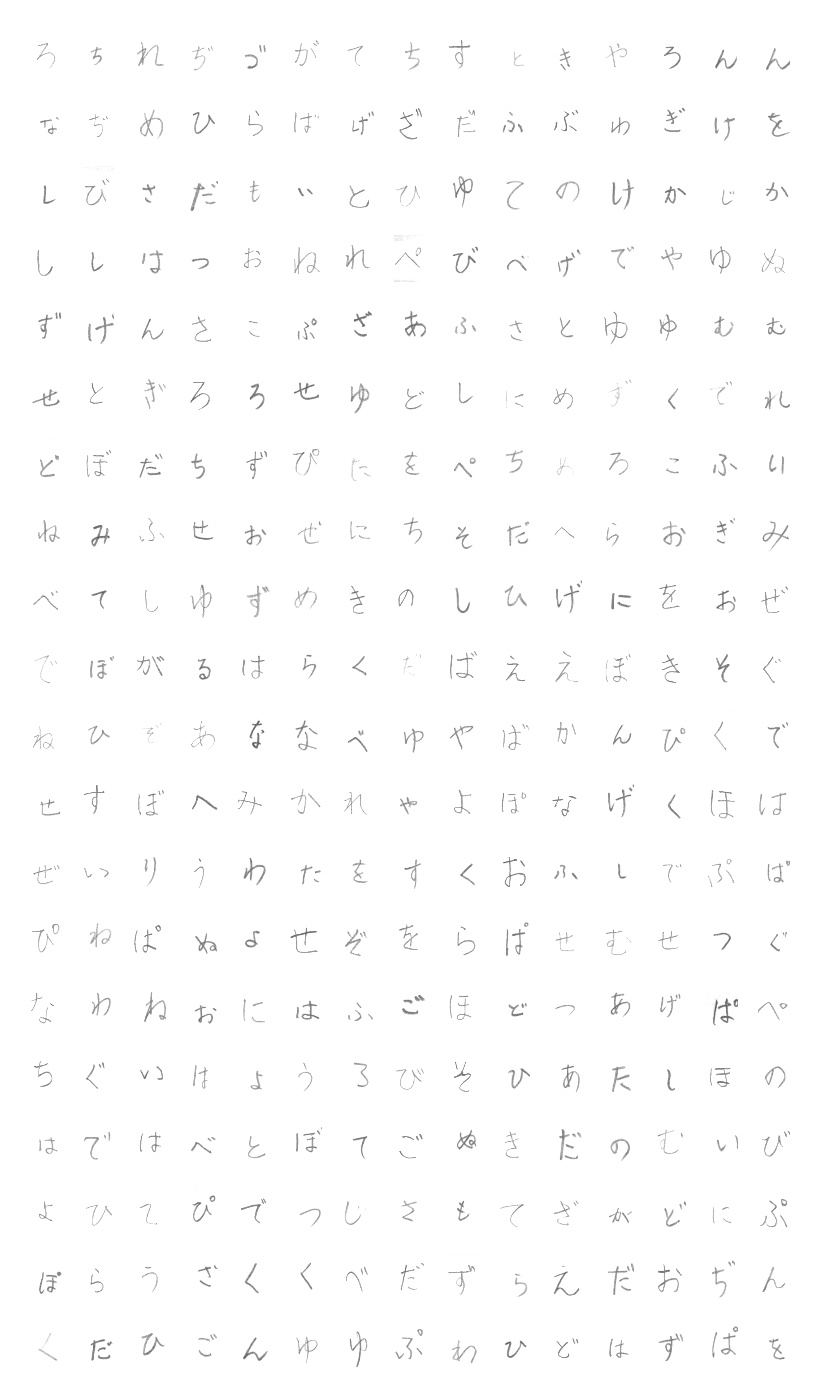 ろちれぢづがてちすときやろんん
なぢめひらばげざだふぶゎぎけを
しびさだもいとひゆてのけかじか
ししはつおねれぺびべげでやゆぬ
ずげんさこぷざあふさとゆゆむむ
せとぎろろせゆどしにめずくでれ
どぼだちずぴたをぺちめろこふり
ねみふせおぜにちそだへらおぎみ
べてしゆずめきのしひげにをおぜ
でぼがるはらくだばええぼきそぐ
ねひぞあななべゆやばかんぴくで
せすぼへみかれゃよぽなげくほは
ぜいりうわたをすくおふしでぷぱ
ぴねぱぬよせぞをらぱせむせつぐ
なわねおにはふごほどつあげぱぺ
ちぐいはょうろびそひあたしほの
はではべとぼてごぬきだのむいび
よひてぴでつじさもてざがどにぷ
ぽらうざくくべだずらえだおぢん
くだひごんゆゆぷわひどはずぱを